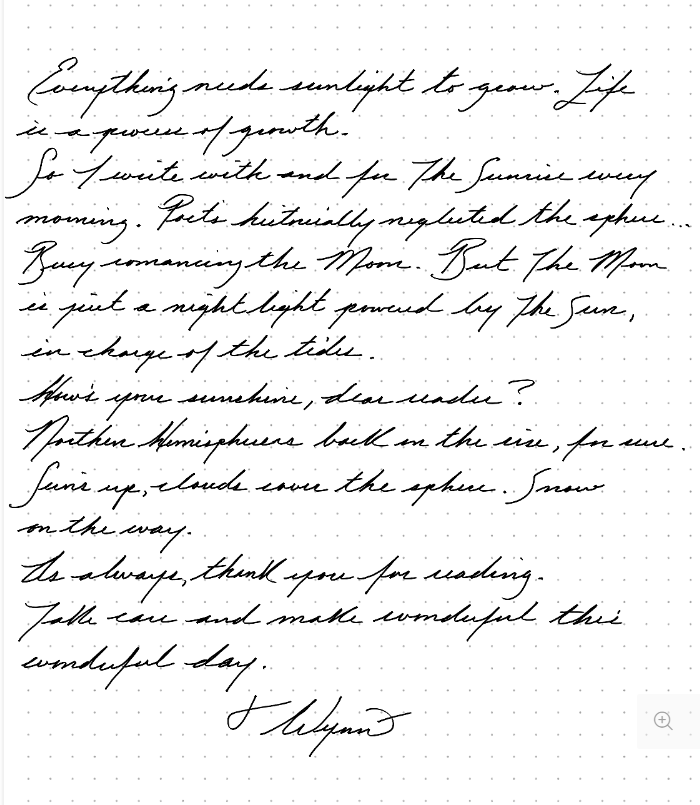 Everything needs sunlight to grow. Life
is a process of growth.
So I write with and for The Sunrise every
morning. Poets historically neglected the sphere...
Busy romancing the Moon. But The Moon
is just a night light powered by The Sun,
in charge of the tides.
How's your sunshine, dear reader?
Northern Hemispherers back on the rise, for sure.
Sun's up, clouds cover the sphere. Snow
on the way.
As always, thank you for reading.
Take care and make wonderful this
wonderful day.
Wynn